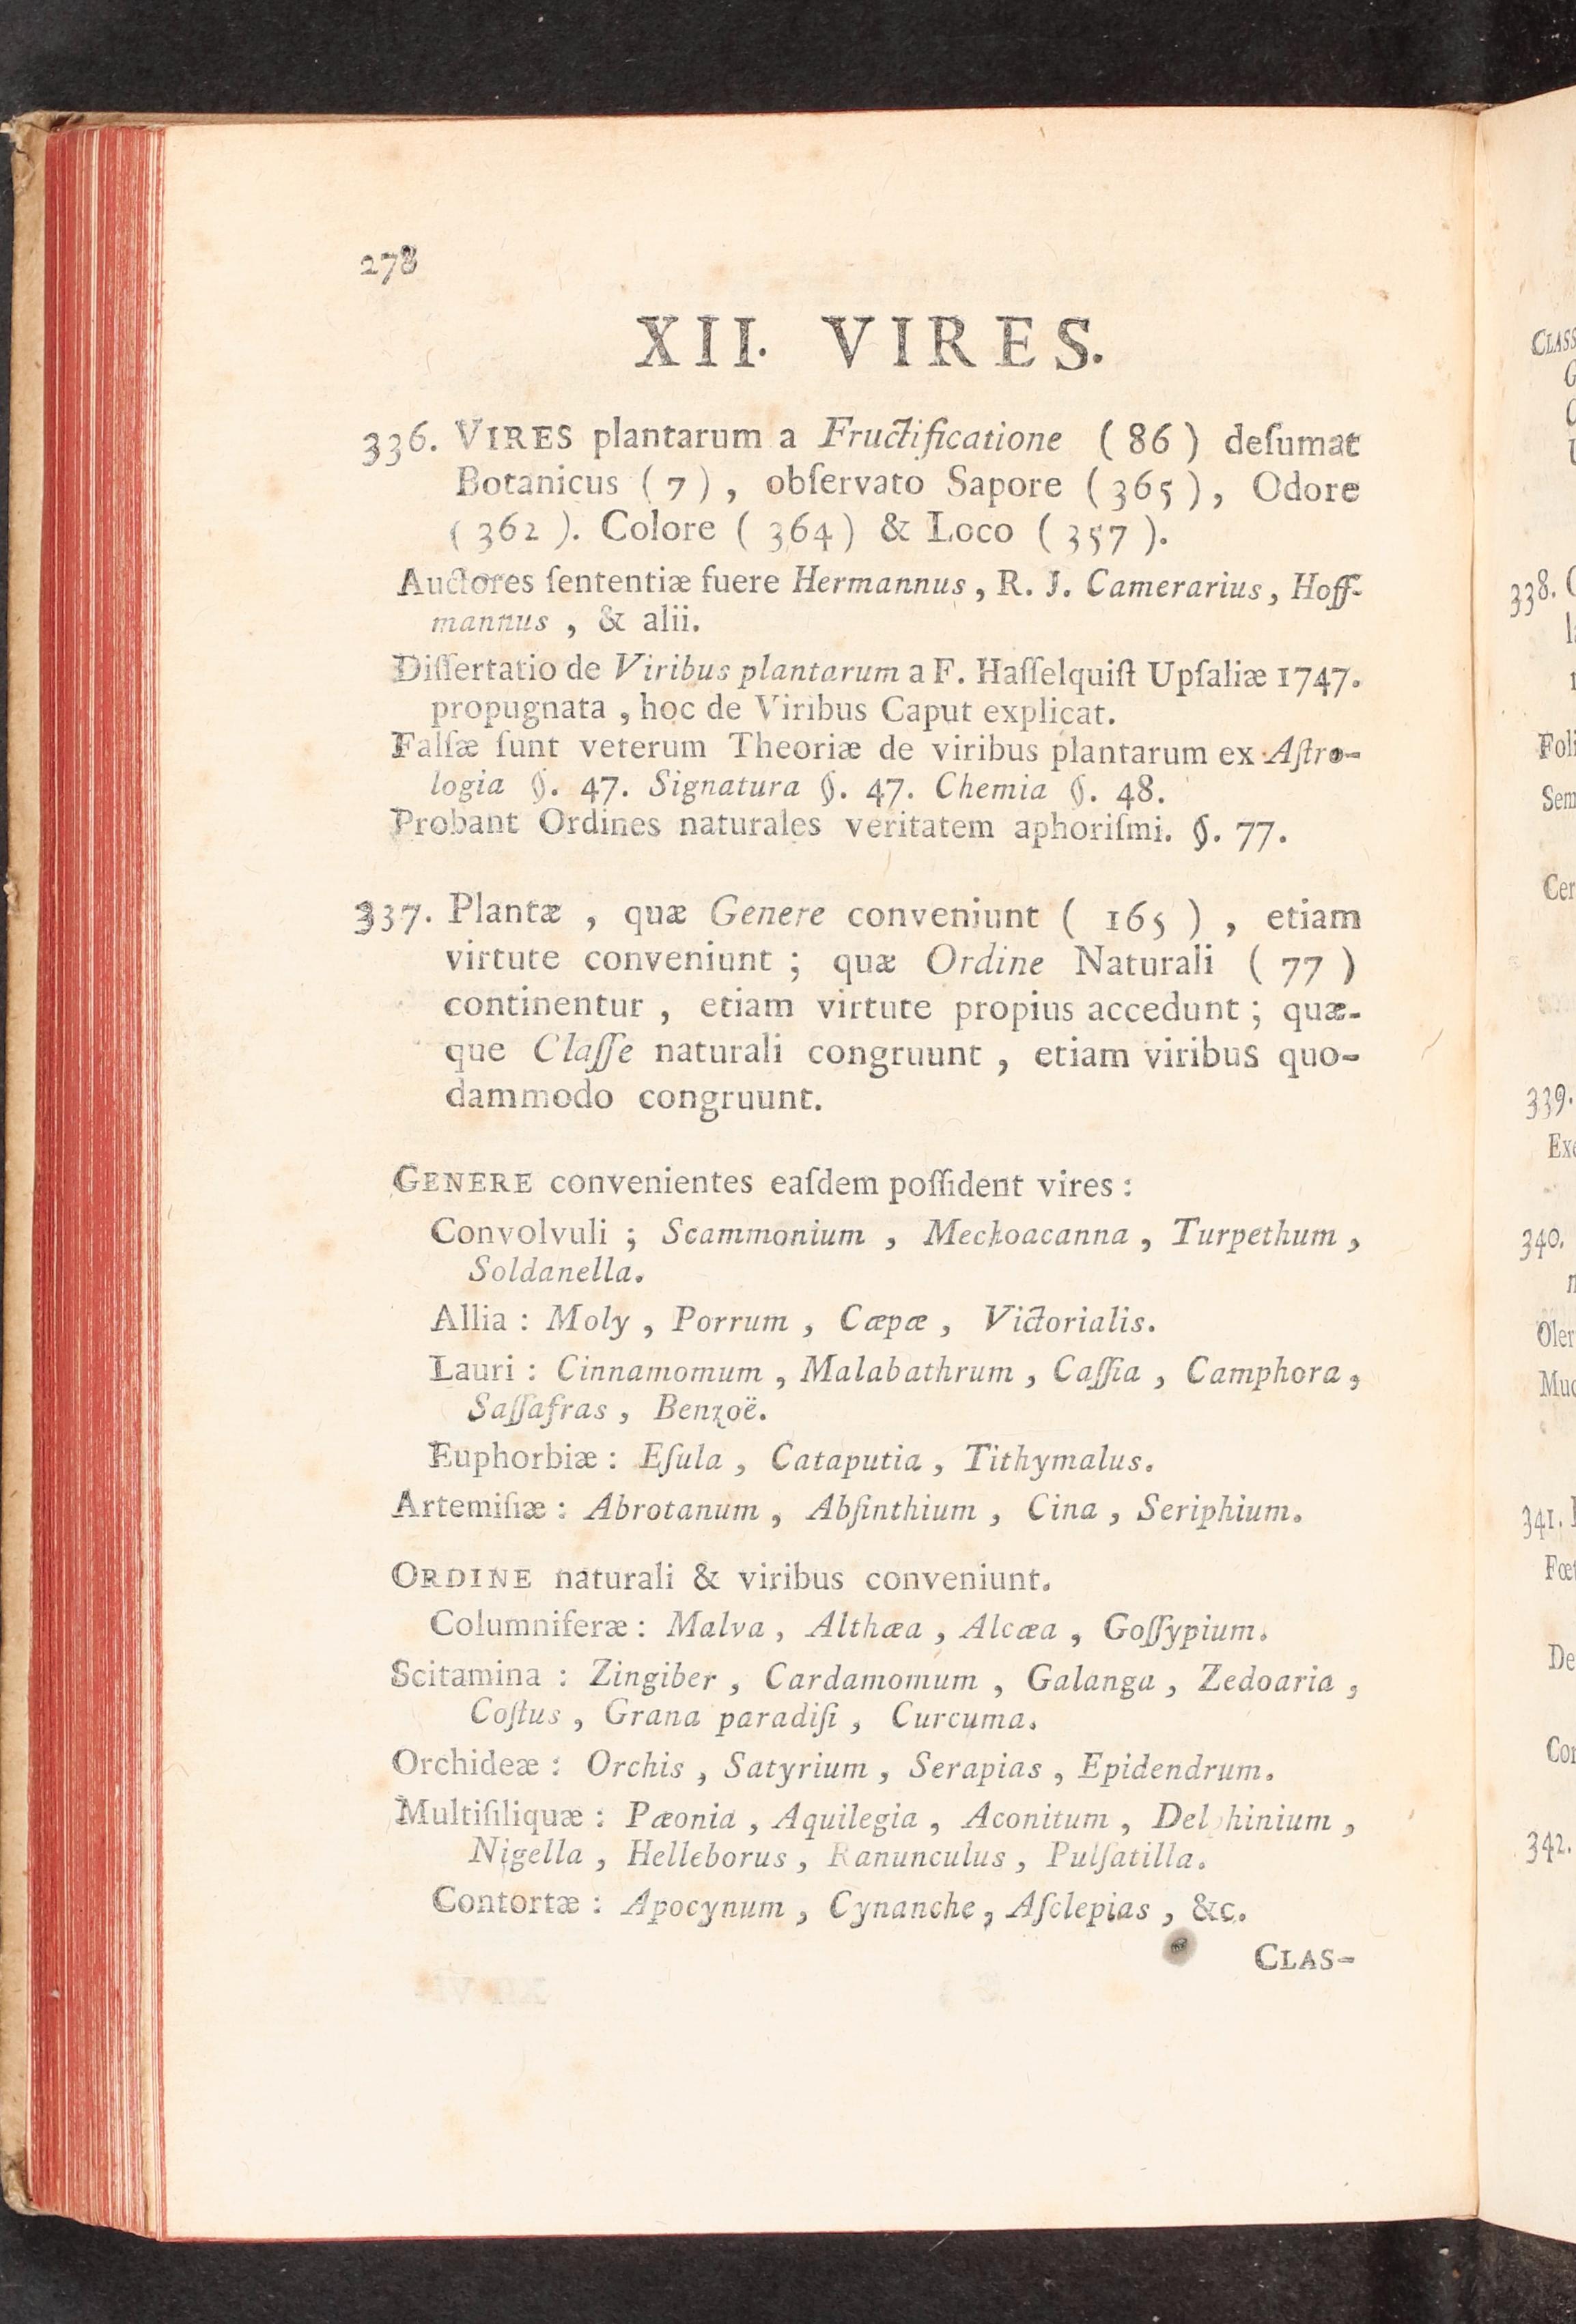 278
XII. VIRES.
336. VIRES plantarum a Fructificatione ( 86 ) deſumat
Botanicus ( 7 ) , obſervato Sapore ( 365 ), Odore
( 362 ). Colore ( 364 ) & Loco ( 357 ).
Auctores ſententiæ fuere Hermannus , R. J. Camerarius , Hoff-
mannus , & alii.
Diſſertatio de Viribus plantarum a F. Haſſelquiſt Upſaliæ 1747.
propugnata , hoc de Viribus Caput explicat.
Falſæ ſunt veterum Theoriæ de viribus plantarum ex Aſtro-
logia §. 47. Signatura §. 47. Chemia §. 48.
Probant Ordines naturales veritatem aphoriſmi. §. 77.
337. Plantæ , quæ Genere conveniunt ( 165 ) , etiam
virtute conveniunt ; quæ Ordine Naturali ( 77 )
continentur , etiam virtute propius accedunt ; quæ-
que Claſſe naturali congruunt , etiam viribus quo-
dammodo congruunt.
GENERE convenientes eaſdem poſſident vires :
Convolvuli ; Scammonium , Mechoacanna , Turpethum ,
Soldanella.
Allia : Moly , Porrum , Cæpæ , Victorialis.
Lauri : Cinnamomum , Malabathrum , Caſſia , Camphora ,
Saſſafras , Benzoë.
Euphorbiæ : Eſula , Cataputia , Tithymalus.
Artemiſiæ : Abrotanum , Abſinthium , Cina , Seriphium.
ORDINE naturali & viribus conveniunt.
Columniferæ : Malva , Althæa , Alcæa , Goſſypium.
Scitamina : Zingiber , Cardamomum , Galanga , Zedoaria ,
Coſtus , Grana paradiſi , Curcuma.
Orchideæ : Orchis , Satyrium , Serapias , Epidendrum.
Multiſiliquæ : Pæonia , Aquilegia , Aconitum , Delphinium ,
Nigella , Helleborus , Ranunculus , Pulſatilla.
Contortæ : Apocynum , Cynanche , Aſclepias , &c.
CLAS-
338.
339.
340.
341.
342.